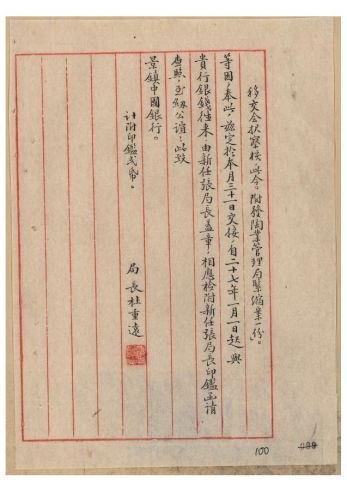 移交会狀察核。此令。附發陶業管理局緊縮案一份」。
等因，奉此，茲定於本月三十一日交接，自二十七年一月一日起與
貴行銀錢往来，由新任張局長蓋章，相應檢附新任張局長印鑑函請
查照，至紉公誼！此致
景鎮中國銀行。
計附印鑑弍帋。
局長杜重遠
100